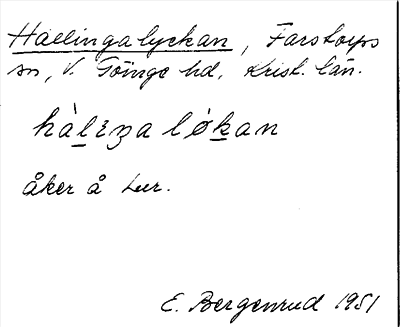 Hallingalyckan, Farstorps
sn, V. Göinge hd, Krist. län.
hàlıŋa løkan
åker å Lur.
E. Bergenrud 1951